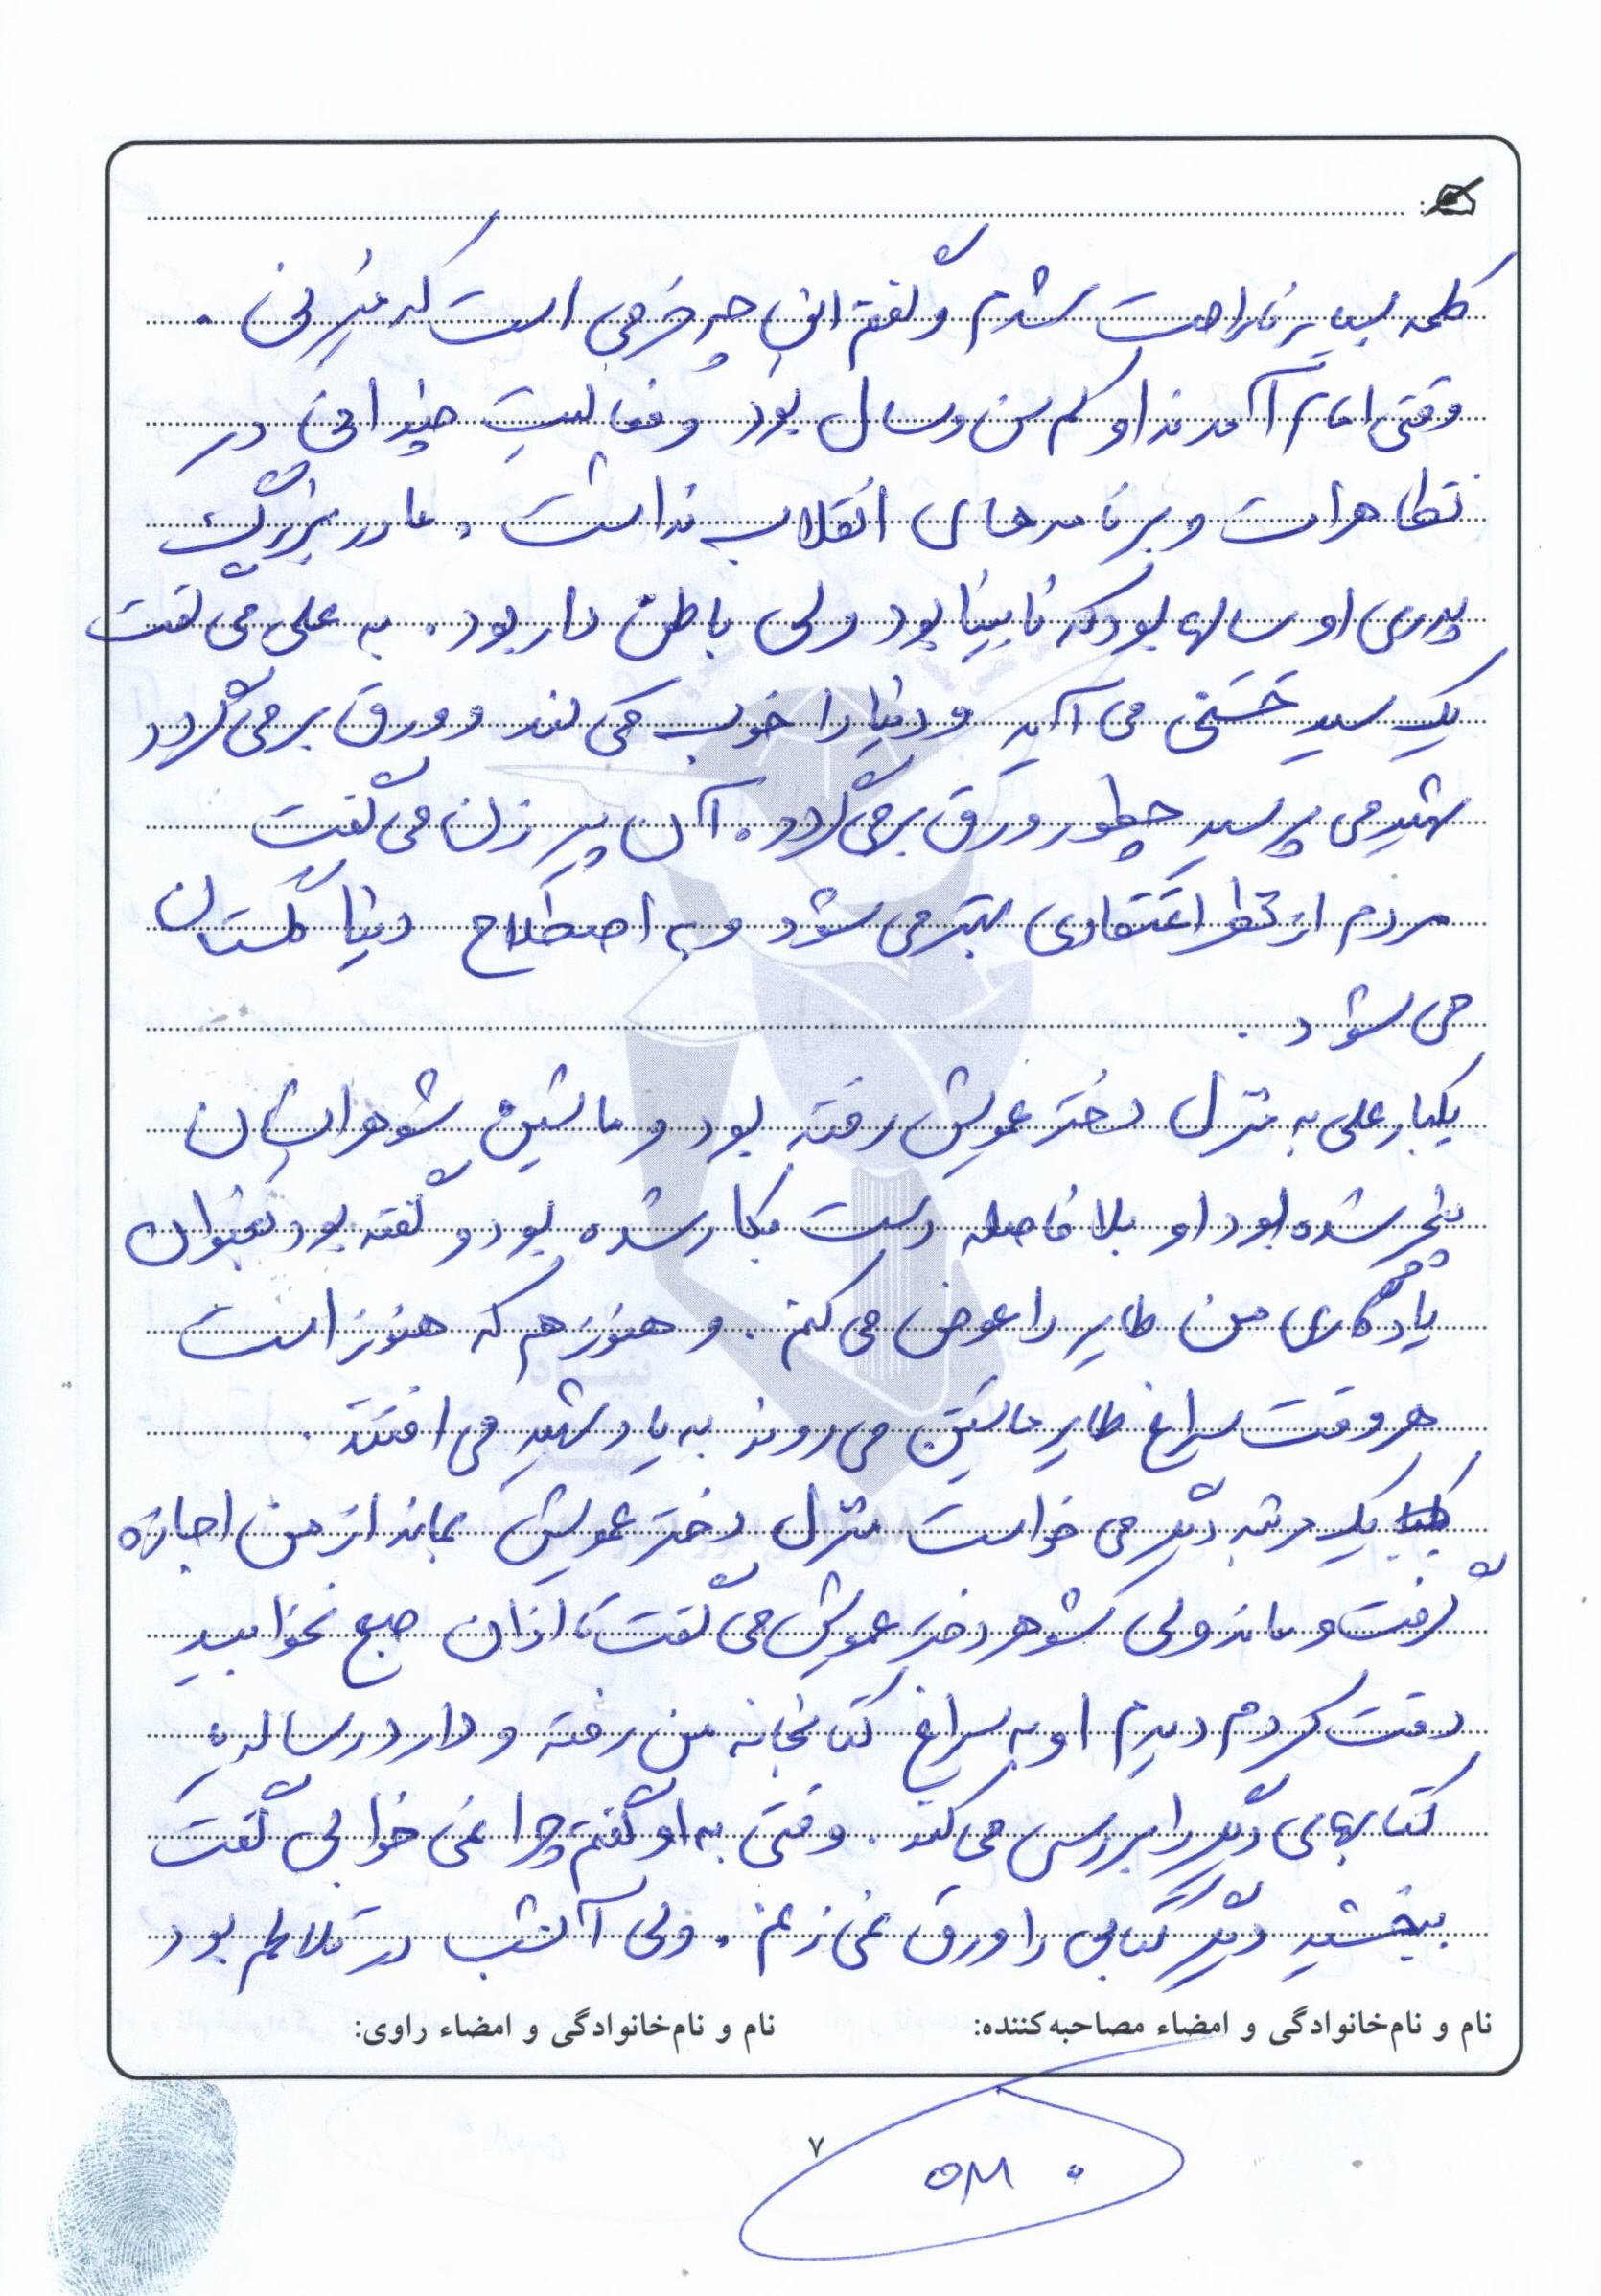 کلمه بسیار ناراحت شدم و گفتم این چه حرفی است که میزنی .
وقتی امام آمدند او کم سن وسال بود و فعالیت چندانی در
تظاهرات و برنامه‌های انقلاب نداشت . مادر بزرگ
پدری او سالها بود که نابینا بود ولی باطن دار بود . به علی می گفت
یک سید حَسَنی می آید و دنیا را خوب می کند و ورق بر می گردد
شهید می پرسید چطور ورق بر می گردد . آن پیر زن می گفت
مردم از نظر اعتقادی بهتر می شود و به اصطلاح دنیا گلستان
می شود .
یکبار علی به منزل دختر عمویش رفته بود و ماشین شوهر ایشان
پنچر شده بود او بلا فاصله دست بکار شده بود و گفته بود بعنوان
یادگاری من طایر را عوض می کنم . و هنوز هم که هنوز است
هر وقت سراغ طایر ماشین می روند به یاد شهید می افتند .
یک مرتبه دیگر می خواست منزل دختر عمویش بماند از من اجازه
گرفت و ماند ولی شوهر دختر عمویش می گفت تا اذان صبح نخوابید
دقت کردم دیدم او به سراغ کتابخانه من رفته و دارد رساله و
کتابهای دیگر را بررسی می کند . وقتی به او گفتم چرا نمی خوابی گفت
ببخشید دیگر کتابی را ورق نمی زنم . ولی آنشب در تلاطم بود
نام و نام‌خانوادگی و امضاء مصاحبه‌کننده: نام و نام‌خانوادگی و امضاء راوی:
۷